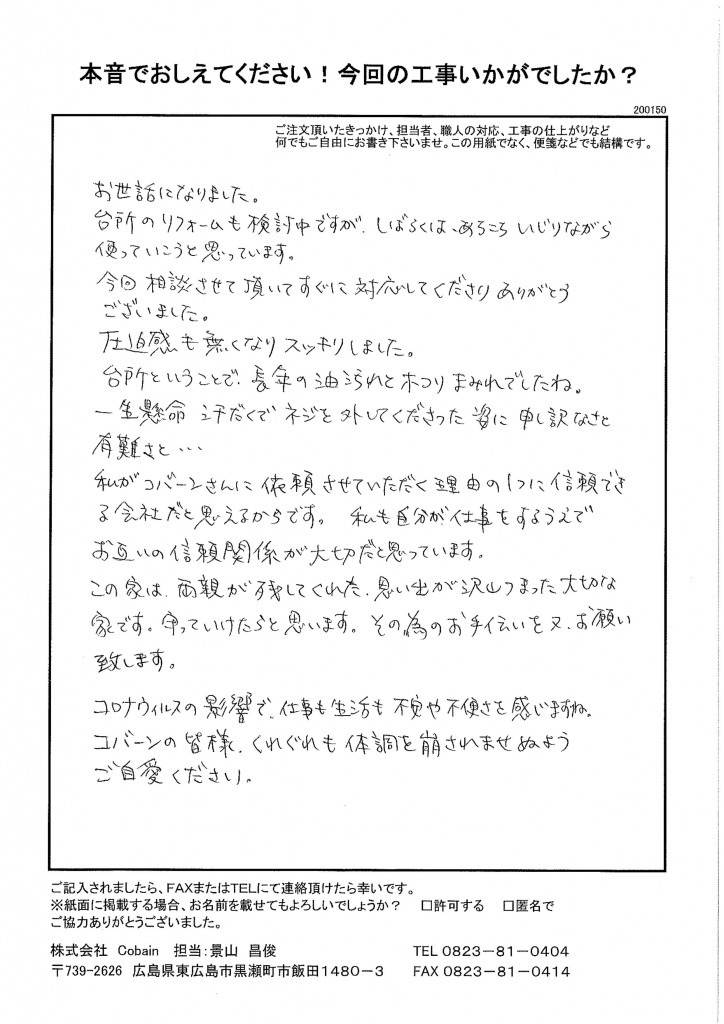 本音でおしえてください！今回の工事いかがでしたか？
200150
ご注文頂いたきっかけ、担当者、職人の対応、工事の仕上がりなど
何でもご自由にお書き下さいませ。この用紙でなく、便箋などでも結構です。
お世話になりました。
台所のリフォームも検討中ですが、しばらくは、あちこち いじりながら
使っていこうと思っています。
今回 相談させて頂いてすぐに 対応してくださり ありがとう
ございました。
圧迫感も無くなり スッキリしました。
台所ということで、長年の油汚れとホコリまみれでしたね。
一生懸命 汗だくで ネジを外してくださった 姿に 申し訳なさと
有難さと・・・
私がコバーンさんに 依頼させていただく理由の1つに信頼でき
る会社だと思えるからです。 私も自分が仕事をするうえで
お互いの信頼関係が大切だと思っています。
この家は、両親が残してくれた、思い出が沢山つまった大切な
家です。守っていけたらと思います。その為のお手伝いを又、お願い
致します。
コロナウィルスの影響で、仕事も生活も 不安や不便さを感じますね。
コバーンの皆様、くれぐれも 体調を崩されませぬよう
ご自愛ください。
ご記入されましたら、FAXまたはTELにて連絡頂けたら幸いです。
※紙面に掲載する場合、お名前を載せてもよろしいでしょうか？ □許可する □匿名で
ご協力ありがとうございました。
株式会社 Cobain 担当：景山 昌俊 TEL 0823－81－0404
〒739-2626 広島県東広島市黒瀬町市飯田1480－3 FAX 0823－81－0414